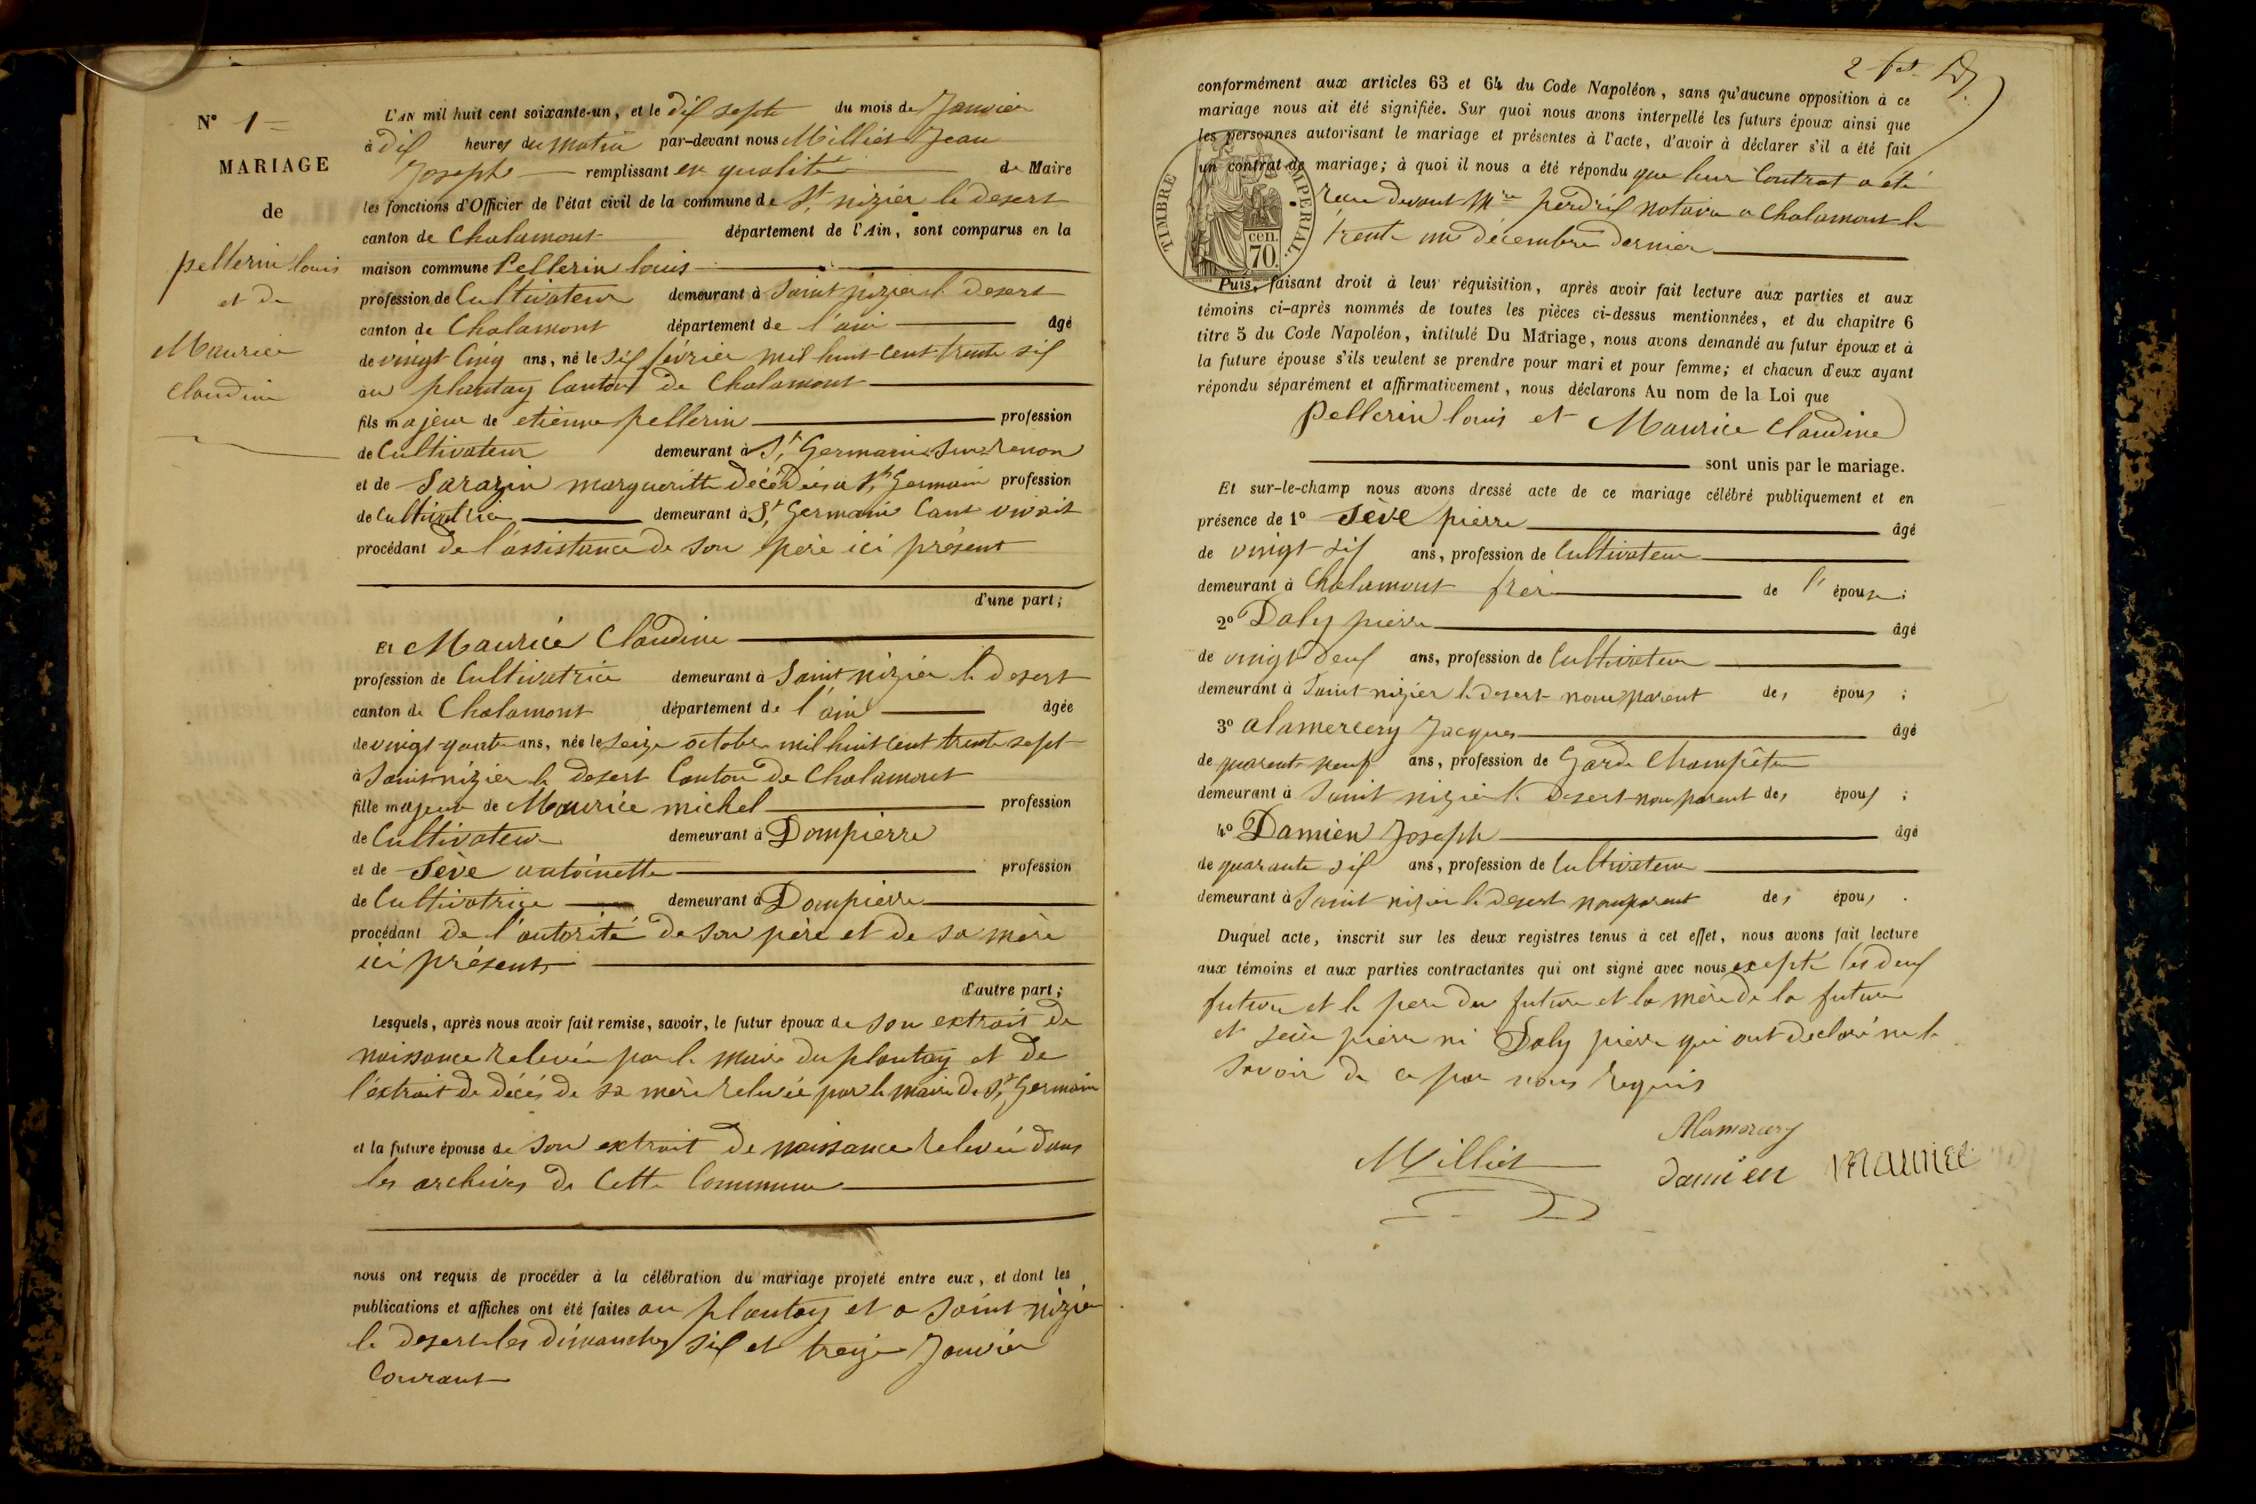 N° 1
MARIAGE
de
pellerin louis
et de
Maurice
claudine
L'AN mil huit cent soixante-un, et le dix sept du mois de Janvier
à dix heures du matin par-devant nous Milliet Jean
Joseph remplissant en qualité de Maire
les fonctions d'Officier de l'état civil de la commune de St nizier le desert
canton de Chalamont département de l'Ain, sont comparus en la
maison commune Pellerin louis
profession de Cultivateur demeurant à Saint nizier le desert
canton de Chalamont département de l'ain âgé
de vingt cinq ans, né le six février mil huit cent trente six
au plantay Canton de Chalamont
fils majeur de etienne pellerin profession
de Cultivateur demeurant à St Germain sur renon
et de Sarazin margueritte décédée a St Germain profession
de Cultivatrice demeurant à St Germain vivait
procédant de l'assistance de son père ici présent
d'une part;
Et Maurice Claudine
profession de Cultivatrice demeurant à Saint nizier le desert
canton de Chalamont département de l'ain âgée
de vingt quatre ans, née le seize octobre mil huit cent trente sept
à Saint nizier le desert Canton de Chalamont
fille majeure de Maurice michel profession
de Cultivateur demeurant à Dompierre
et de Sève antoinette profession
de Cultivatrice demeurant à Dompierre
procédant de l'autorité de son père et de sa mère
ici présents
d'autre part;
Lesquels, après nous avoir fait remise, savoir, le futur époux de son extrait de
naissance relevée par le maire du plantay et de
l'extrait de décés de sa mère relevée par le maire de St Germain
et la future épouse de son extrait de naissance relevée dans
les archives de Cette Commune
nous ont requis de procéder à la célébration du mariage projeté entre eux, et dont les
publications et affiches ont été faites au plantay et a Saint nizier
le desert les dimanches six et treize Janvier
Courant
2
conformément aux articles 63 et 64 du Code Napoléon, sans qu'aucune opposition à ce
mariage nous ait été signifiée. Sur quoi nous avons interpellé les futurs époux ainsi que
les personnes autorisant le mariage et présentes à l'acte, d'avoir à déclarer s'il a été fait
un contrat de mariage; à quoi il nous a été répondu que leur Contrat a été
recu devant Mre perdrix notaire a Chalamont le
trente un décembre dernier
TIMBRE IMPERIAL.
cen.
70.
Puis, faisant droit à leur réquisition, après avoir fait lecture aux parties et aux
témoins ci-après nommés de toutes les pièces ci-dessus mentionnées, et du chapitre 6
titre 5 du Code Napoléon, intitulé Du Mariage, nous avons demandé au futur époux et à
la future épouse s'ils veulent se prendre pour mari et pour femme; et chacun d'eux ayant
répondu séparément et affirmativement, nous déclarons Au nom de la Loi que
Pellerin louis et Maurice Claudine
sont unis par le mariage.
Et sur-le-champ nous avons dressé acte de ce mariage célébré publiquement et en
présence de 1° Sève pierre âgé
de vingt six ans, profession de Cultivateur
demeurant à Chalamont frère de l' épouse;
2° Daly pierre âgé
de vingt deux ans, profession de Cultivateur
demeurant à Saint nizier le desert non parent des époux;
3° alamercery Jacques âgé
de quarante neuf ans, profession de Garde Champêtre
demeurant à Saint nizier le desert non parent des époux;
4° Damien Joseph âgé
de quarante six ans, profession de Cultivateur
demeurant à Saint nizier le desert non parent des époux.
Duquel acte, inscrit sur les deux registres tenus à cet effet, nous avons fait lecture
aux témoins et aux parties contractantes qui ont signé avec nous excepté les deux
future et le pere du future et la mère de la future
et seve pierre ni Daly pierre qui ont declaré ne le
savoir de ce par nous requis
Alamercery
Milliet
Damien Maurice